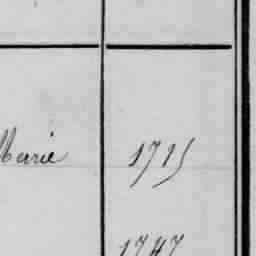 Marie 1715
1747